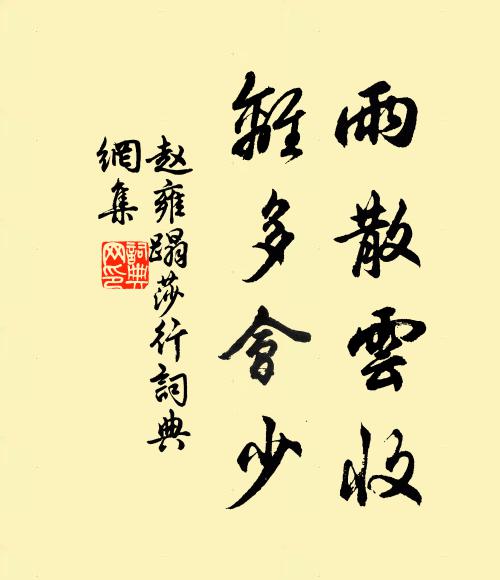 雨散雲收
離多會少
赵雍蹋莎行詞典
網集
詞典
网印